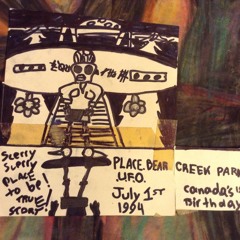 SLERRY
SLERRY
PLACE
TO be!
TRUE
STORY
PLACE. BEAR
U.F.O.
July 1st
1994
CREEK PARK
canada's
Birthday